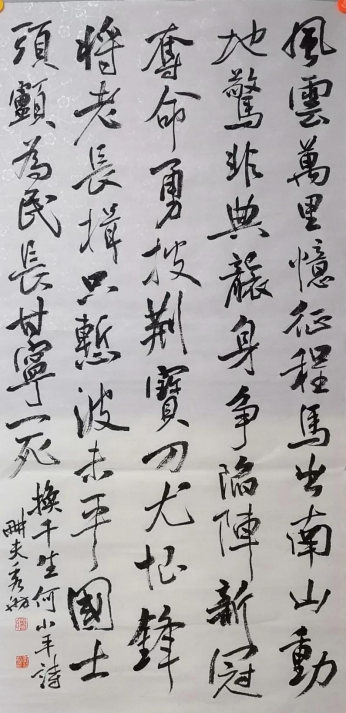 風雲萬里憶征程馬出南山動
地驚非典襲身爭陷陣新冠
奪命勇披荆寶刀尤怕鋒
將老長揖只慙波未平國士
頭顱為民長甘寧一死
換千生何小平詩
畊夫